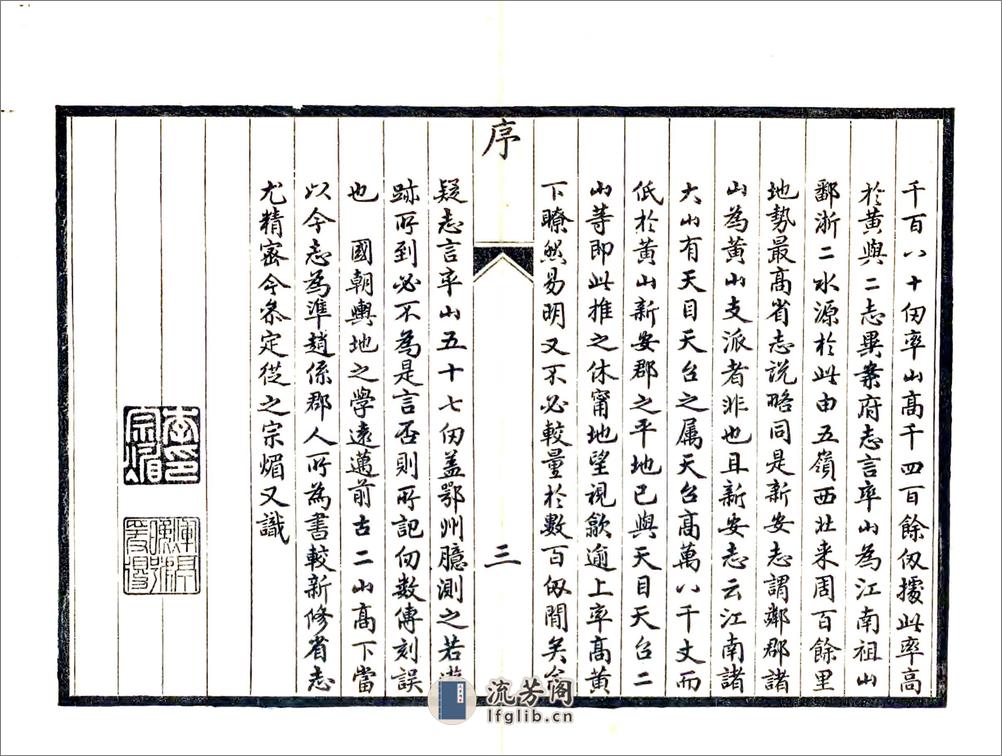 千百八十仞率山高千四百餘仞據此率高
於黃與二志異案府志言率山為江南祖山
鄱浙二水源於此由五嶺西北来周百餘里
地勢最高省志說略同是新安志謂鄰郡諸
山為黃山支派者非也且新安志云江南諸
大山有天目天台之属天台高萬八千丈而
低於黃山新安郡之平地已與天目天台二
山等即此推之休甯地望視歙逾上率高黃
下瞭然易明又不必較量於數百仞閒矣
序
三
疑志言率山五十七仞盖鄂州臆測之若遊
跡所到必不為是言否則所記仞數傳刻誤
也 國朝輿地之學遠邁前古二山高下當
以今志為準趙係郡人所為書較新修省志
尤精密今叅定從之宗煝又識
李印
宗煝
流芳阁
lfglib.cn